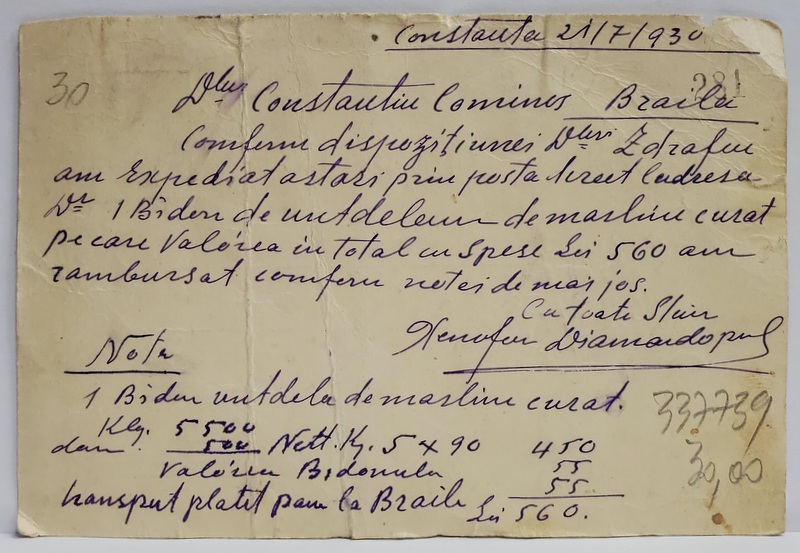 Constanta 21/7/930
30
281
Dlui Constantin Cominos Braila
Comform dispozițiunei Dlui Zdrafcu
am Expediat astazi prin posta direct ladresa
Dv 1 Bidon de untdelemn de masline curat
pe care Valórea in total cu Spese Lei 560 am
rambursat comform notei de mai jos.
Cu toate Stim
Xenofon Diamandopul
Nota
1 Bidon untdele de masline curat.
337739
Klg. 5500
dara 500 Nett. Kg. 5 x 90 450
30,00
Valórea Bidonula 55
transput platit pana la Braila 55
Lei 560.